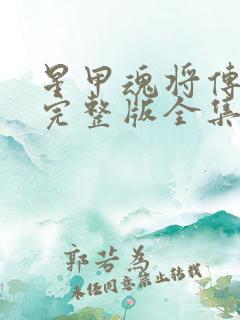 星甲魂将传
完整版全集
郭若为
未经同意禁止转载